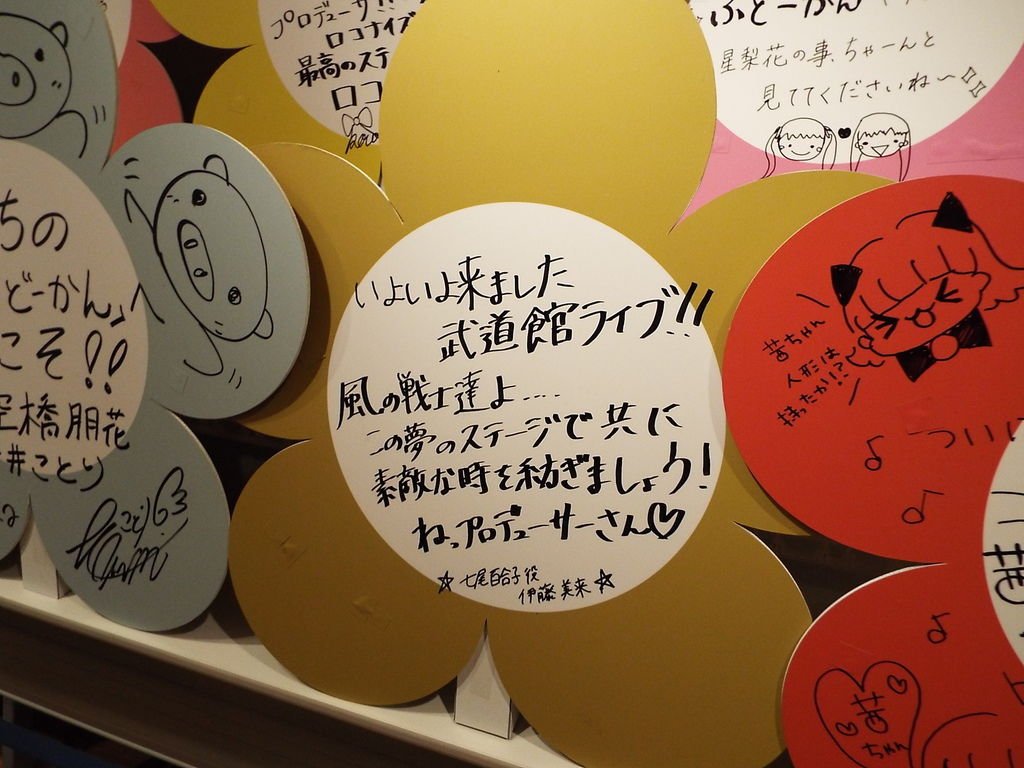 プロデューサー!!
ロコナイズ
最高のステ
ロコ
roco
ぶどーかん
星梨花の事、ちゃーんと
見ててくださいね〜!!
ちの
どーかん」
こそ!!
橋朋花
井ことり
ことり63
いよいよ来ました
武道館ライブ!!
風の戦士達よ....
この夢のステージで共に
素敵な時を紡ぎましょう!
ねっプロデューサーさん♡
☆七尾百合子役
伊藤美来☆
茜ちゃん
人形は
持ったか!?
♪ついに
♪
♪
茜
ちゃん